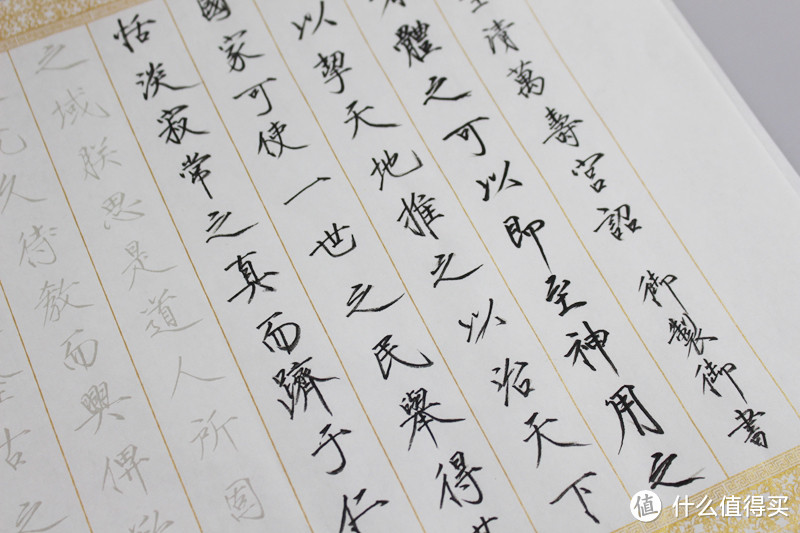 清萬壽宮詔 御製御書
體之可以即至神用之
以挈天地推之以治天下
國家可使一世之民舉得
恬淡寂常之真而躋于仁
之域朕思是道人所固
久待教而興俾
古之
值 什么值得买